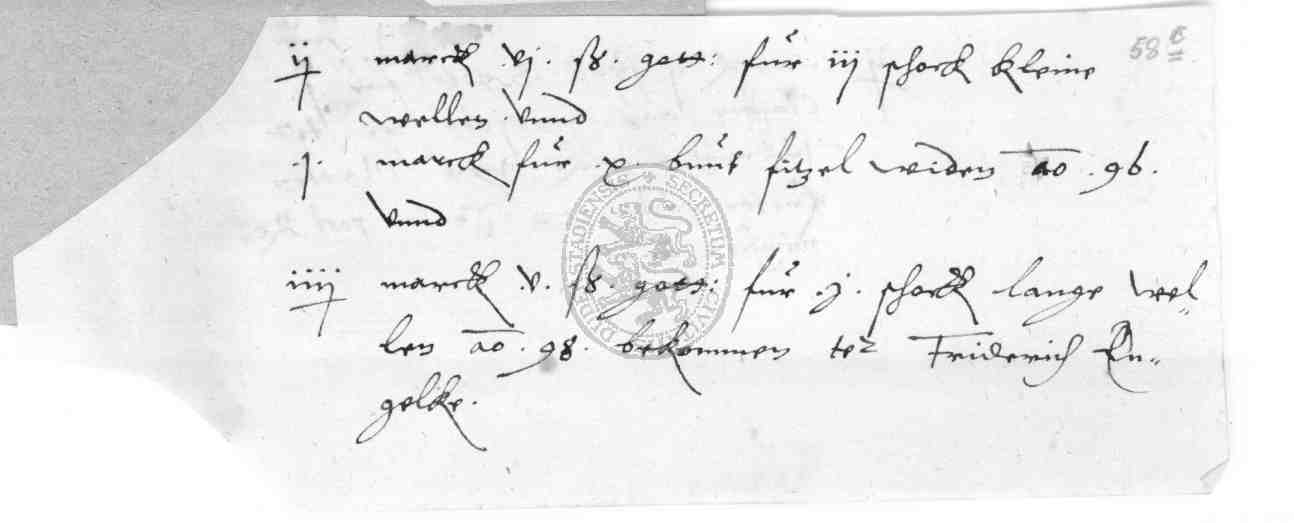 ij marck vj. ß. gott: für iij schock kleine 58 c
wellen vnnd
.j. marck für .x. bunt fitzel widen ao .96.
vnnd
iiij marck .v. ß. gott: für .j. schock lange wel„
len ao .98. bekommen ter Friderich En„
gelke.
SECRETUM CIVIT DUDERSTADIENSIS